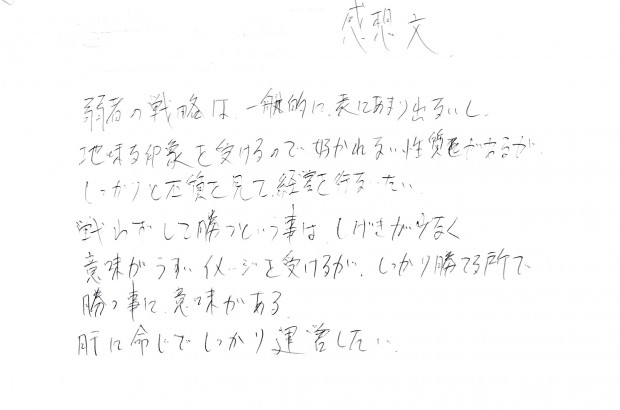 感想文
弱者の戦略は、一般的に、表にあまり出ないし、
地味な印象を受けるので好かれない性質があるが、
しっかりと本質を見て、経営を行ないたい。
戦わずして勝つという事は、しげきが少なく
意味がうすいイメージを受けるが、しっかり勝てる所で
勝つ事に、意味がある。
肝に命じてしっかり運営したい。